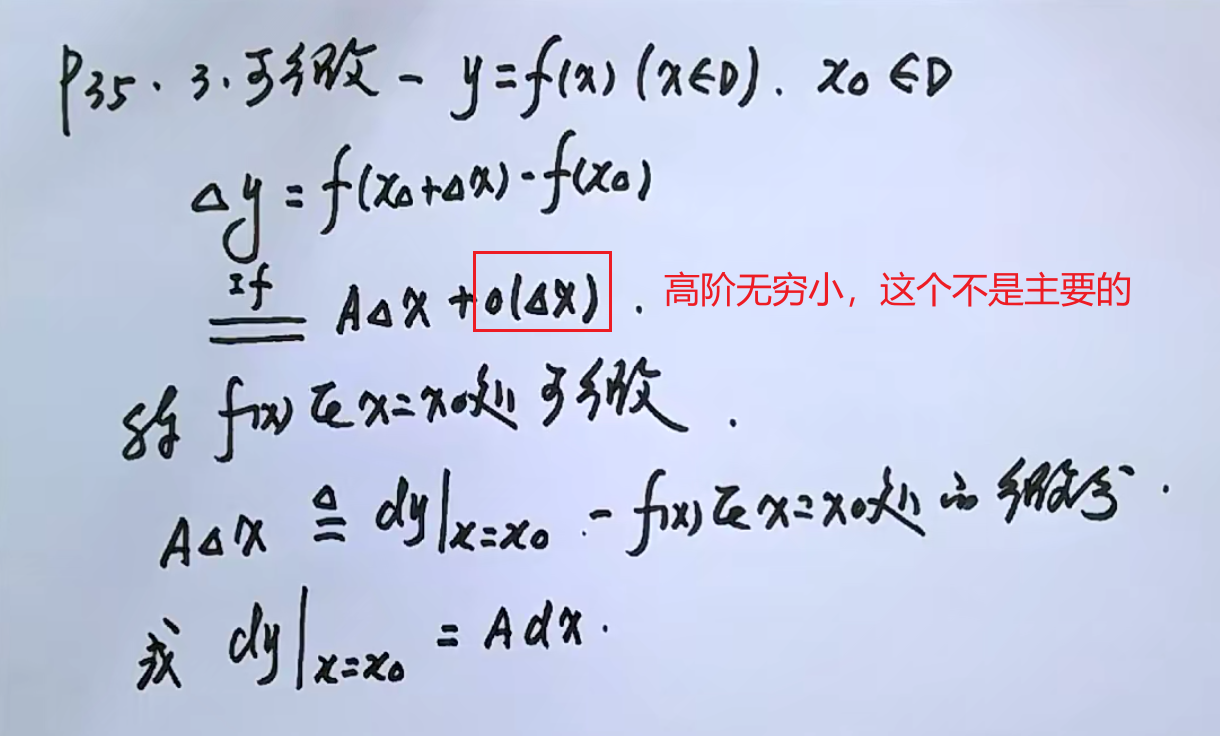 P35. 3. 可微 - y=f(x) (x∈D). x₀∈D
Δy = f(x₀+Δx) - f(x₀)
if
AΔx + o(Δx). 高阶无穷小，这个不是主要的
称 f(x) 在 x=x₀处 可微.
AΔx ≜ dy|x=x₀ - f(x)在x=x₀处的微分.
或 dy|x=x₀ = Adx.